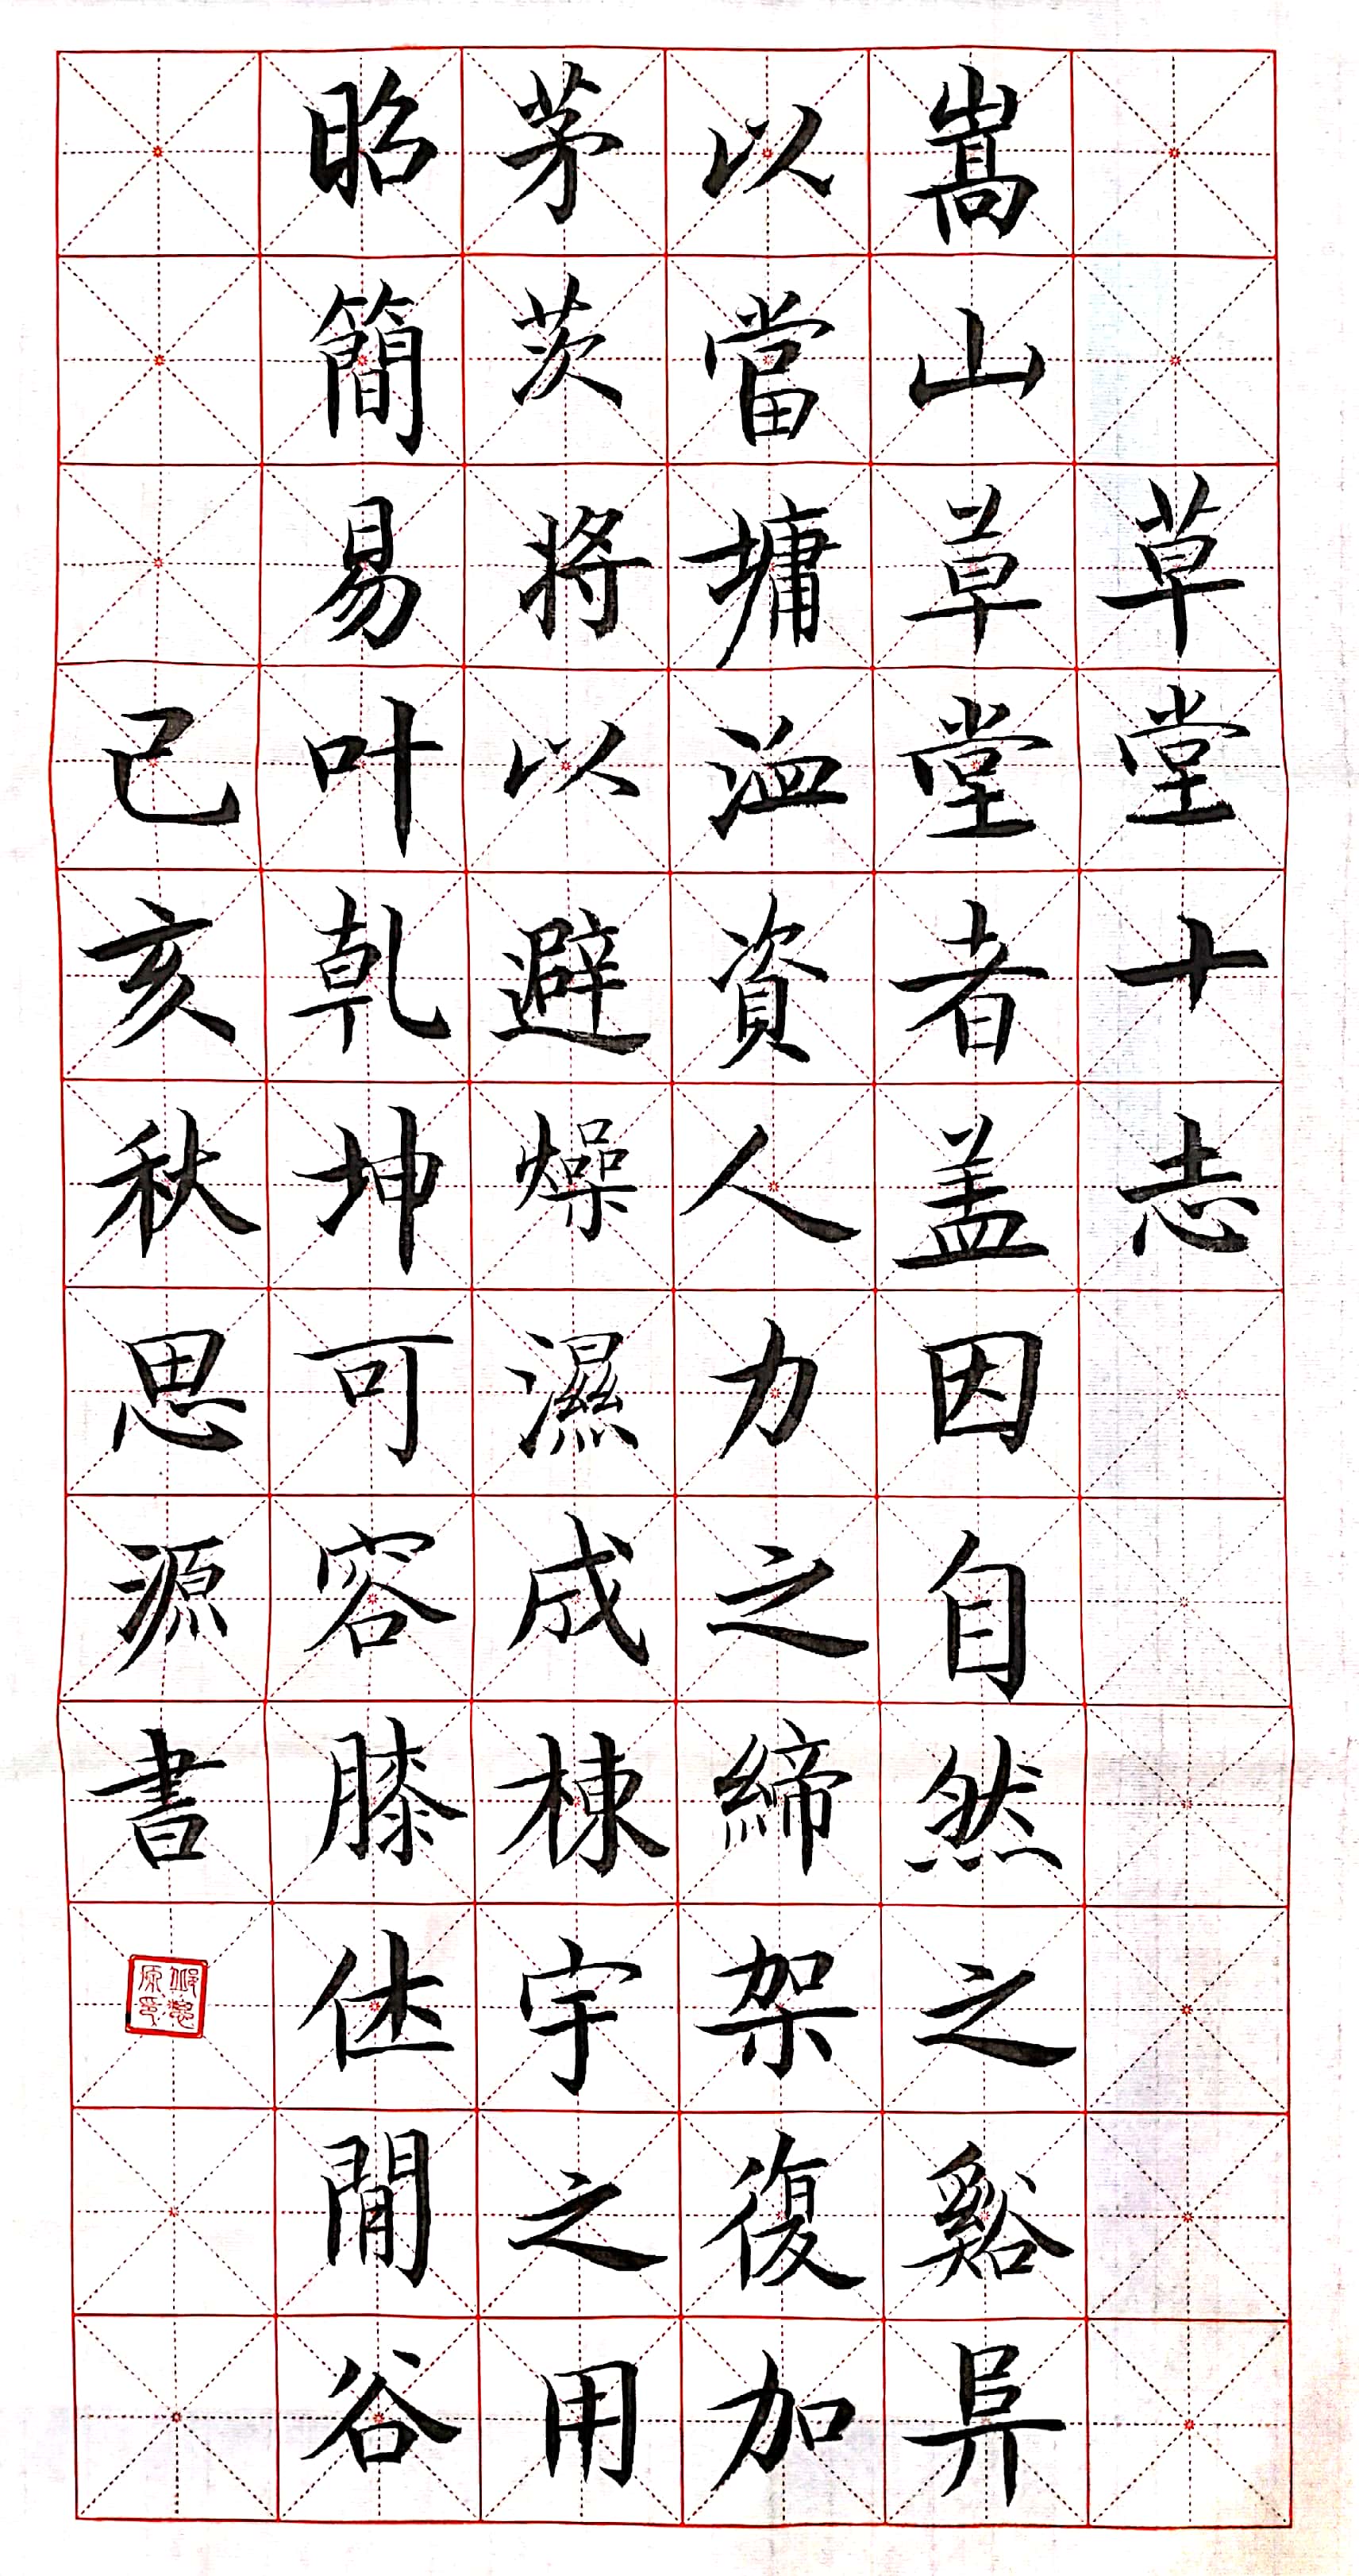 草堂十志
嵩山草堂者盖因自然之谿阜
以當墉洫資人力之締架復加
茅茨將以避燥濕成棟宇之用
昭簡易叶乾坤可容膝休閒谷
己亥秋思源書